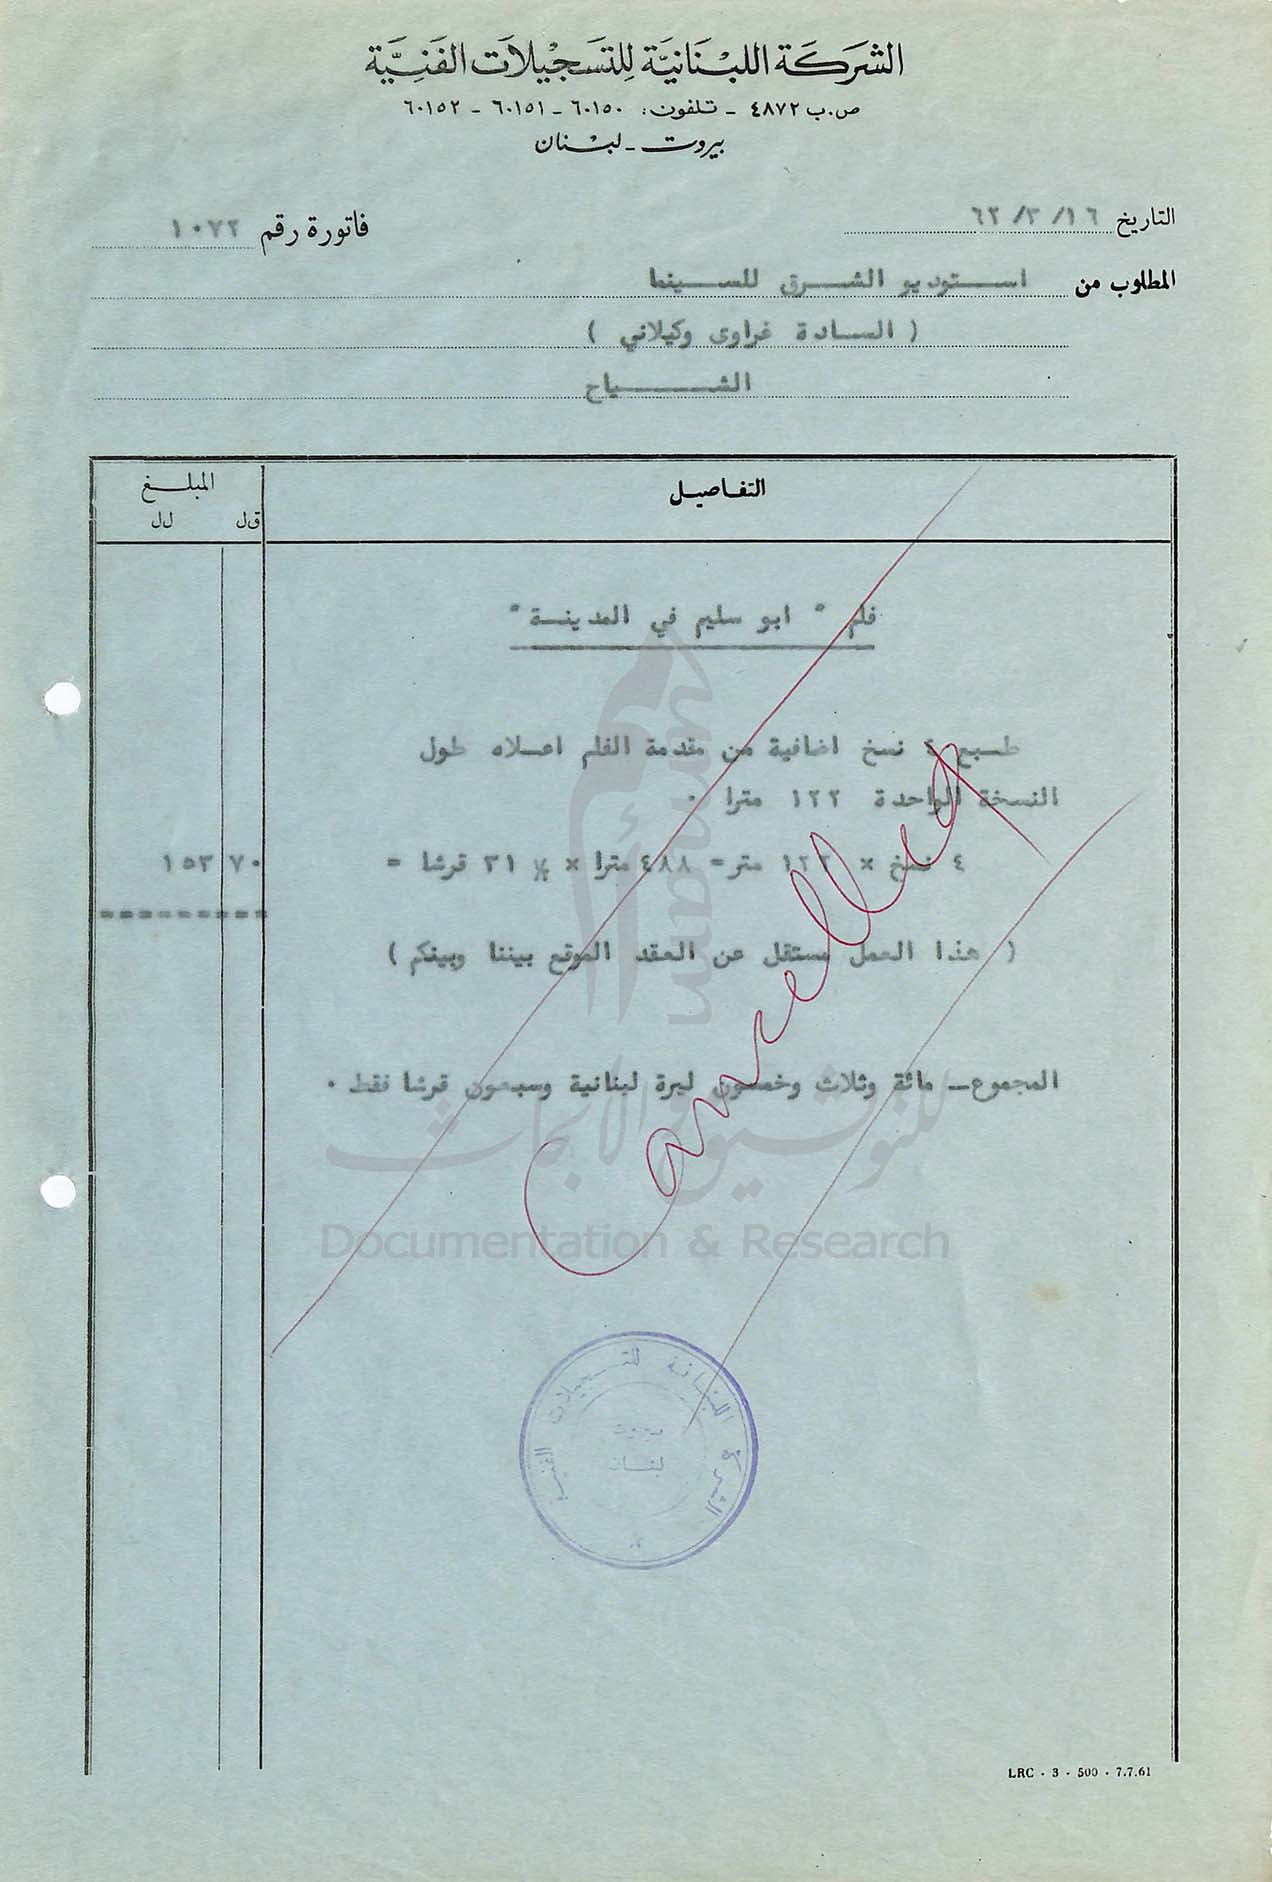 الشركة اللبنانية للتسجيلات الفنية
ص.ب ٤٨٧٢ - تلفون: ٦٠١٥٠ - ٦٠١٥١ - ٦٠١٥٢
بيروت - لبنان
التاريخ ١٦/٣/٦٢
فاتورة رقم ١٠٧٢
المطلوب من استوديو الشرق للسينما
( السادة غراوى وكيلاني )
الشياح
التفاصيل
المبلغ
ق.ل ل.ل
فلم " ابو سليم في المدينة "
طبع ٤ نسخ اضافية من مقدمة الفلم اعلاه طول
النسخة الواحدة ١٢٢ مترا ٠
٤ نسخ × ١٢٢ متر = ٤٨٨ مترا × ٣١ ½ قرشا = ١٥٣ ٧٠
( هذا العمل مستقل عن العقد الموقع بيننا وبينكم )
المجموع - مائة وثلاث وخمسون ليرة لبنانية وسبعون قرشا فقط ٠
Cancelled
أمم
umam
للتوثيق والأبحاث
Documentation & Research
الشركة اللبنانية للتسجيلات الفنية
بيروت
لبنان
LRC - 3 - 500 - 7.7.61